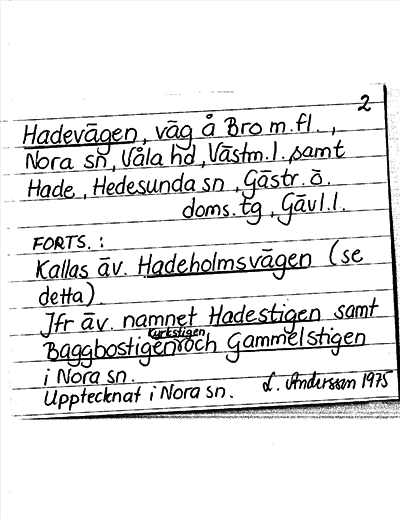 2
Hadevägen, väg å Bro m.fl.,
Nora sn, Våla hd, Västm.l. samt
Hade, Hedesunda sn, Gästr. ö.
doms.tg, Gävl.l.
FORTS.:
Kallas äv. Hadeholmsvägen (se
detta).
Jfr äv. namnet Hadestigen samt
Kyrkstigen,
Baggbostigen och Gammelstigen
i Nora sn.
Upptecknat i Nora sn. L. Andersson 1975